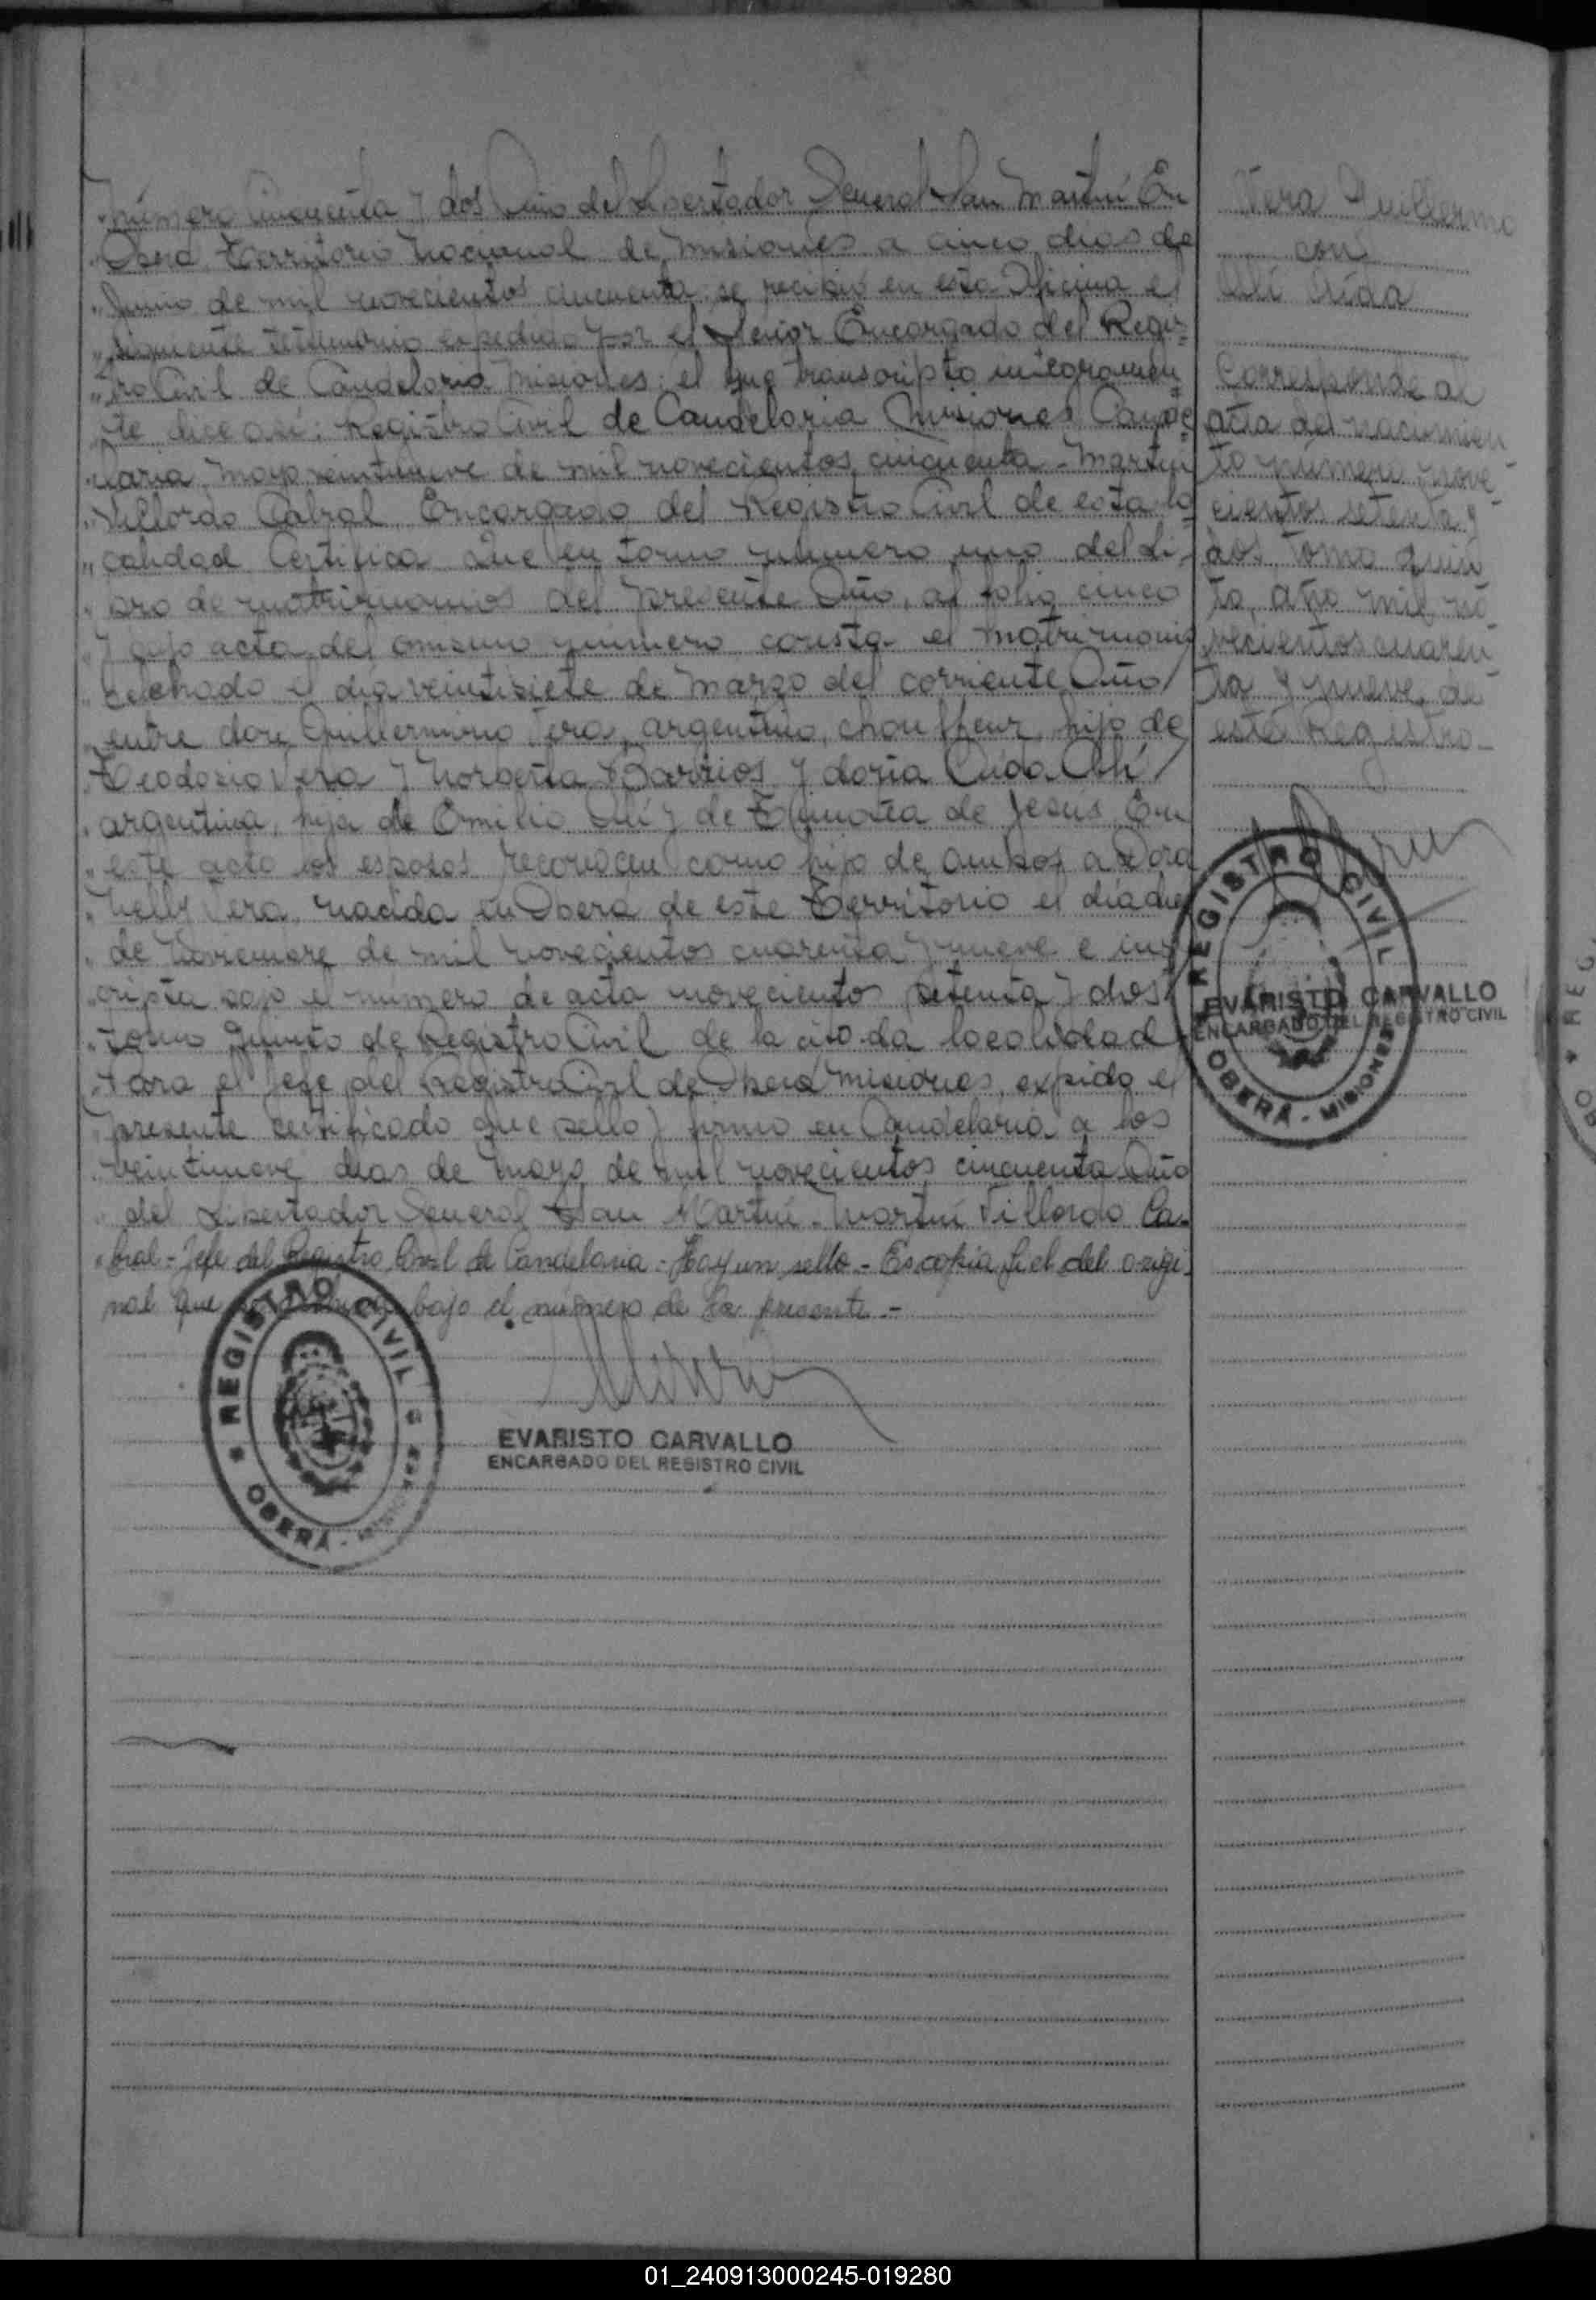 Número Cincuenta y dos Año del Libertador General San Martín En
Oberá, Territorio Nacional de Misiones a cinco dias de
Junio de mil novecientos cincuenta, se recibió en esta Oficina el
siguiente testimonio expedido por el Señor Encargado del Regis-
tro Civil de Candelaria Misiones; el que transcripto integramen-
te dice así: Registro Civil de Candelaria Misiones Cande-
laria, mayo veintinueve de mil novecientos cincuenta - Martín
Villordo Cabral, Encargado del Registro Civil de esta lo-
calidad Certifica Que en tomo número uno del Li-
bro de matrimonios del presente Año, al folio cinco
y bajo acta del mismo número consta el matrimonio
celebrado el día veintisiete de Marzo del corriente Año
entre don Guillermino Vera, argentino, chouffeur, hijo de
Teodosio Vera y Norberta Barrios y doña Aída Alí
argentina, hija de Emilio Alí y de de Jesús En
este acto los esposos reconocen como hijo de ambos a Dora
Nelly Vera, nacida en Oberá de este Territorio el día
de Noviembre de mil novecientos cuarenta y nueve e ins-
cripta bajo el número de acta novecientos setenta y dos
tomo Quinto de Registro Civil de la citada localidad
Para el Jefe del Registro Civil de Oberá Misiones, expido el
presente certificado que sello y firmo en Candelaria a los
veintinueve dias de Mayo de mil novecientos cincuenta Año
del Libertador General San Martín. Martín Villordo Ca-
bral - Jefe del Registro Civil de Candelaria - Hay un sello - Es copia fiel del origi-
nal que bajo el número de la presente.-
EVARISTO CARVALLO
ENCARGADO DEL REGISTRO CIVIL
REGISTRO CIVIL
OBERÁ - MISIONES
Vera Guillermo
con
Alí Aída
Corresponde al
acta del nacimien-
to número nove-
cientos setenta y
dos, tomo quin-
to, año mil no-
vecientos cuaren-
ta y nueve, de
este Registro.-
REGISTRO CIVIL
OBERÁ - MISIONES
EVARISTO CARVALLO
ENCARGADO DEL REGISTRO CIVIL
01_240913000245-019280